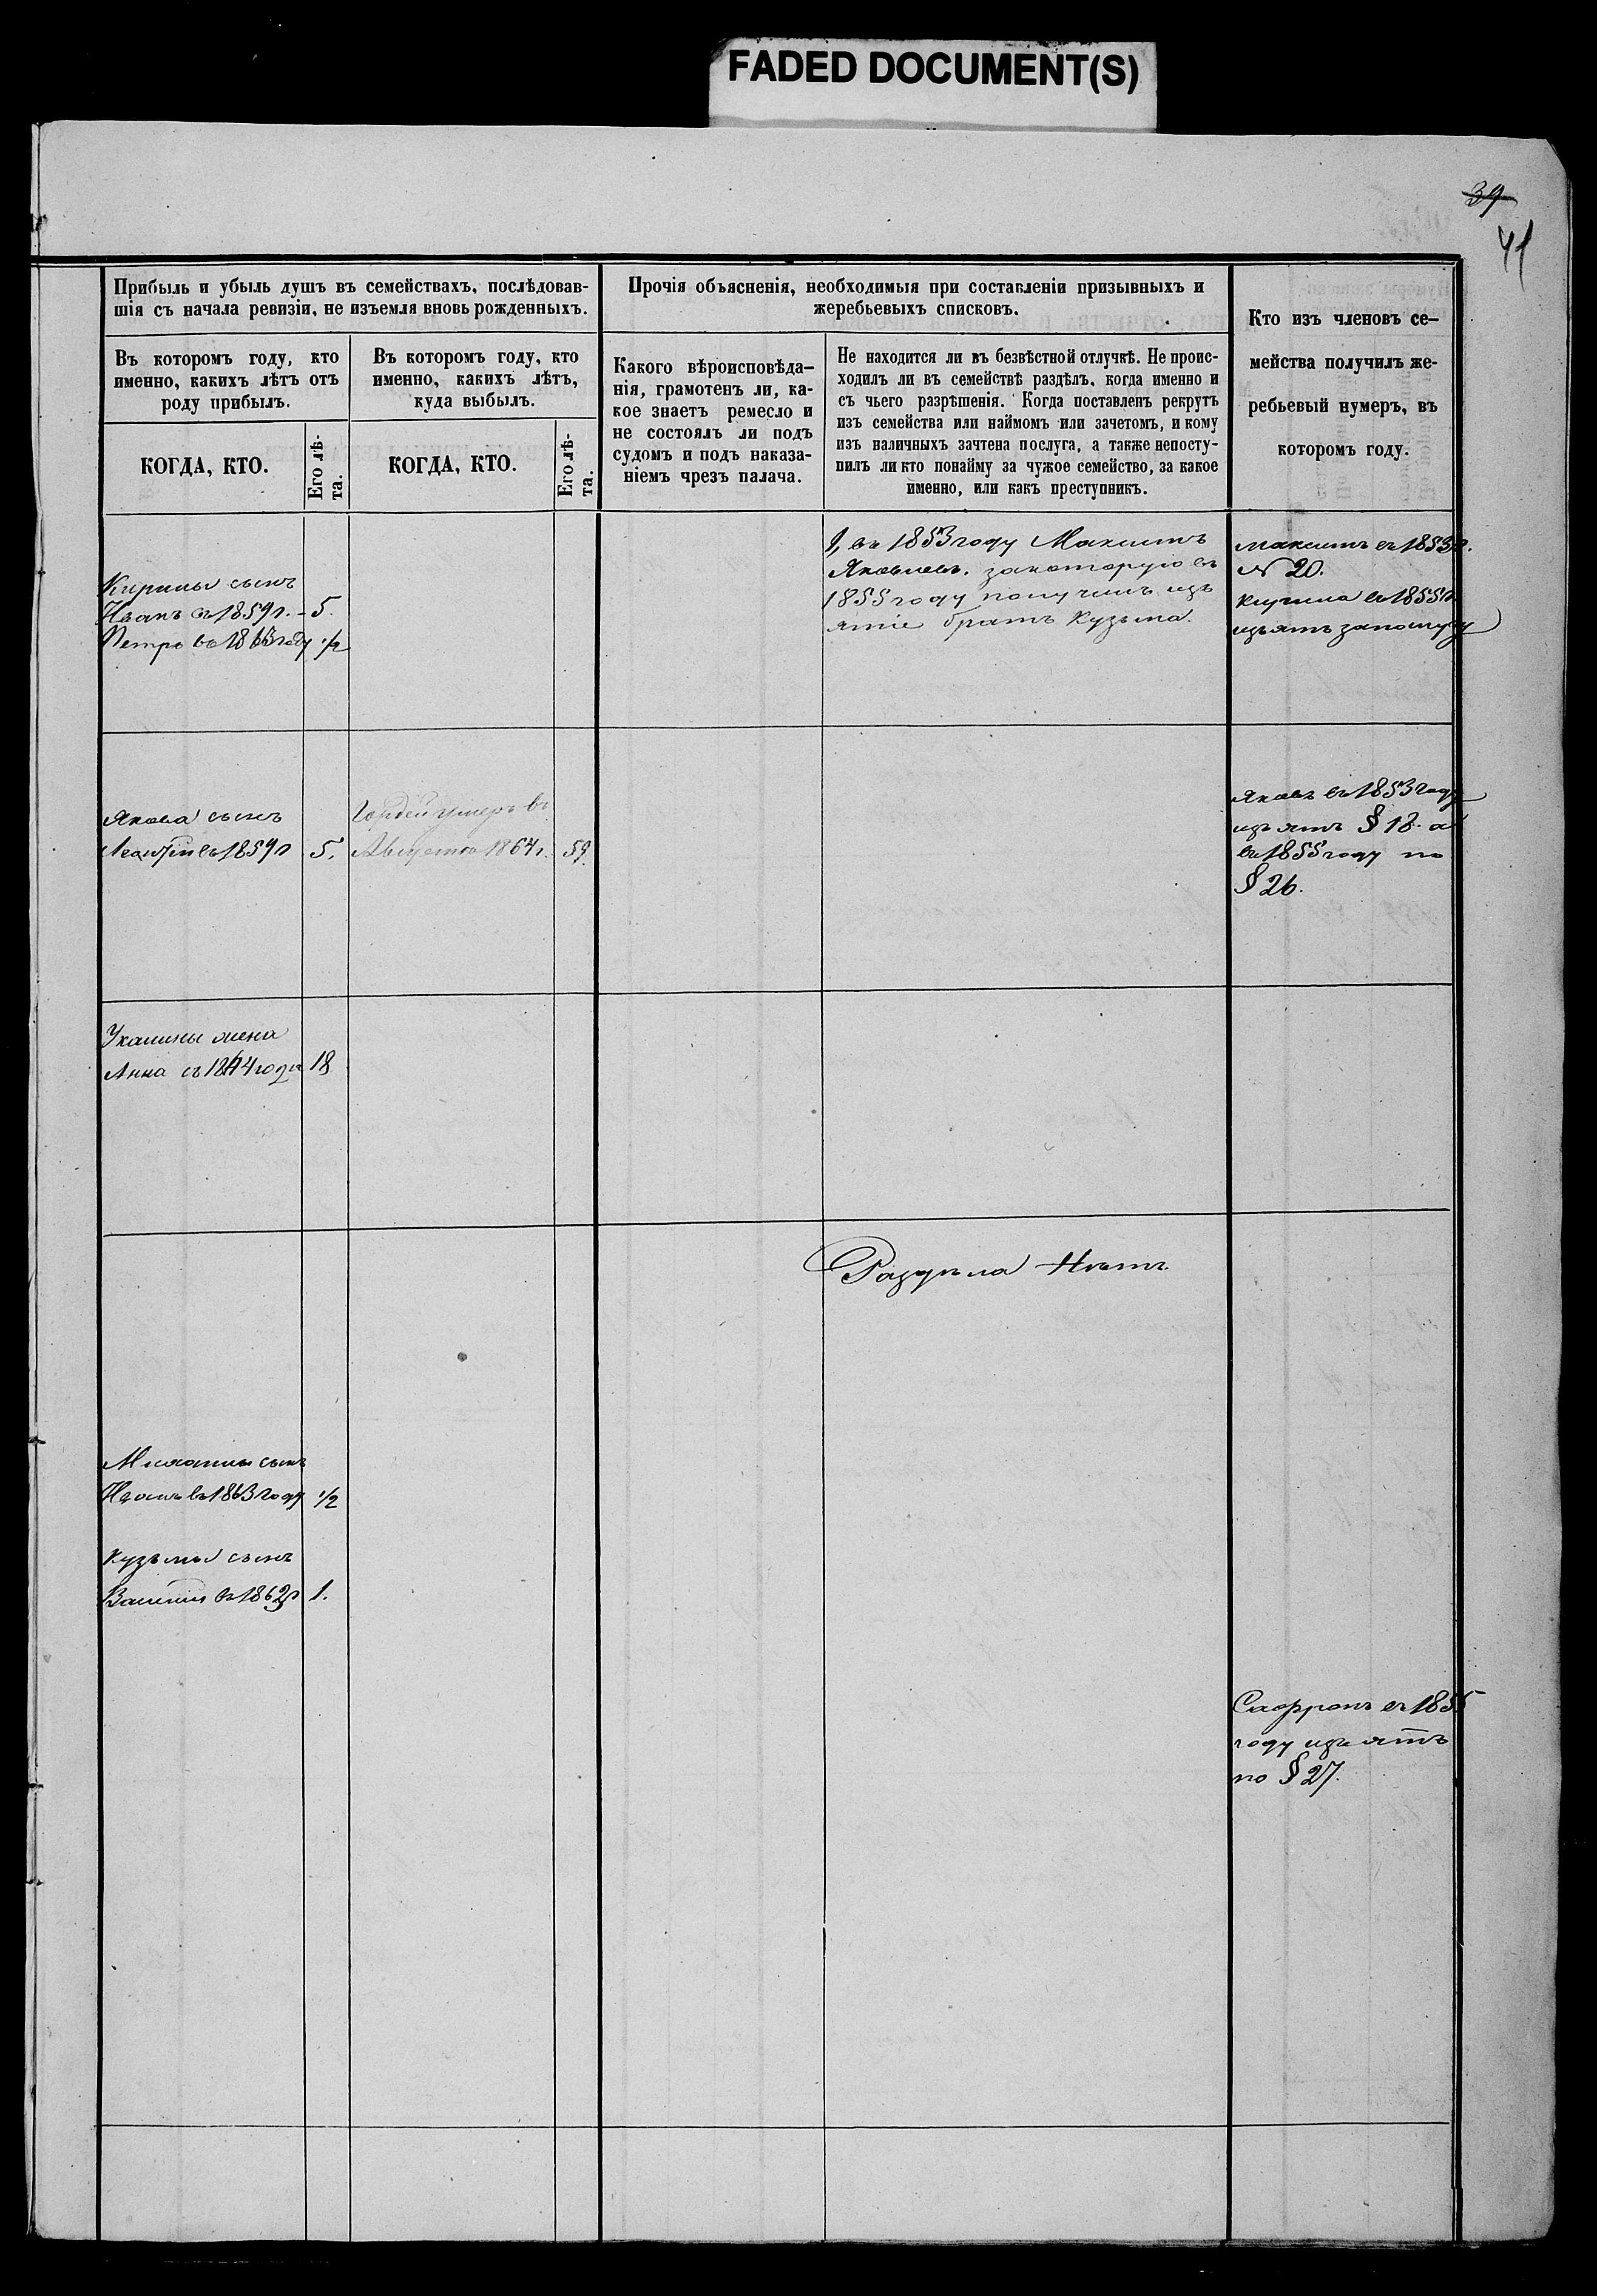 FADED DOCUMENT(S)
39
41
Прибыль и убыль душъ въ семействахъ, послѣдовав-
шія съ начала ревизіи, не изъемля вновь рожденныхъ.
Въ которомъ году, кто
именно, какихъ лѣтъ отъ
роду прибылъ.
КОГДА, КТО.
Его лѣ-
та.
Въ которомъ году, кто
именно, какихъ лѣтъ,
куда выбылъ.
КОГДА, КТО.
Его лѣ-
та.
Прочія объясненія, необходимыя при составленіи призывныхъ и
жеребьевыхъ списковъ.
Какого вѣроисповѣда-
нія, грамотенъ ли, ка-
кое знаетъ ремесло и
не состоялъ ли подъ
судомъ и подъ наказа-
ніемъ чрезъ палача.
Не находится ли въ безвѣстной отлучкѣ. Не проис-
ходилъ ли въ семействѣ раздѣлъ, когда именно и
съ чьего разрѣшенія. Когда поставленъ рекрутъ
изъ семейства или наймомъ или зачетомъ, и кому
изъ наличныхъ зачтена послуга, а также непосту-
пилъ ли кто понайму за чужое семейство, за какое
именно, или какъ преступникъ.
Кто изъ членовъ се-
мейства получилъ же-
ребьевый нумеръ, въ
которомъ году.
Кирилы сынъ
Иванъ въ 1859 г. - 5.
Петръ въ 1863 году 1/2
1, въ 1853 году Максимъ
Яковлевъ. закоторую въ
1855 году получилъ изъ
ятіе братъ Кузьма.
Максимъ въ 1853 г.
№ 20.
въ 1855 г.
изъятъ
Якова сынъ
въ 1859 г 5.
Гордей умеръ въ
Августѣ 1864 г. 59.
Яковъ въ 1853 году
изъятъ § 18. а
въ 1855 году по
§ 26.
жена
Анна съ 1864 года 18
Раздѣла Нѣтъ.
сынъ
Иванъ въ 1863 году 1/2
Кузьмы сынъ
Василій въ 1862 г 1.
Сафронъ въ 1855
году изъятъ
по § 27.